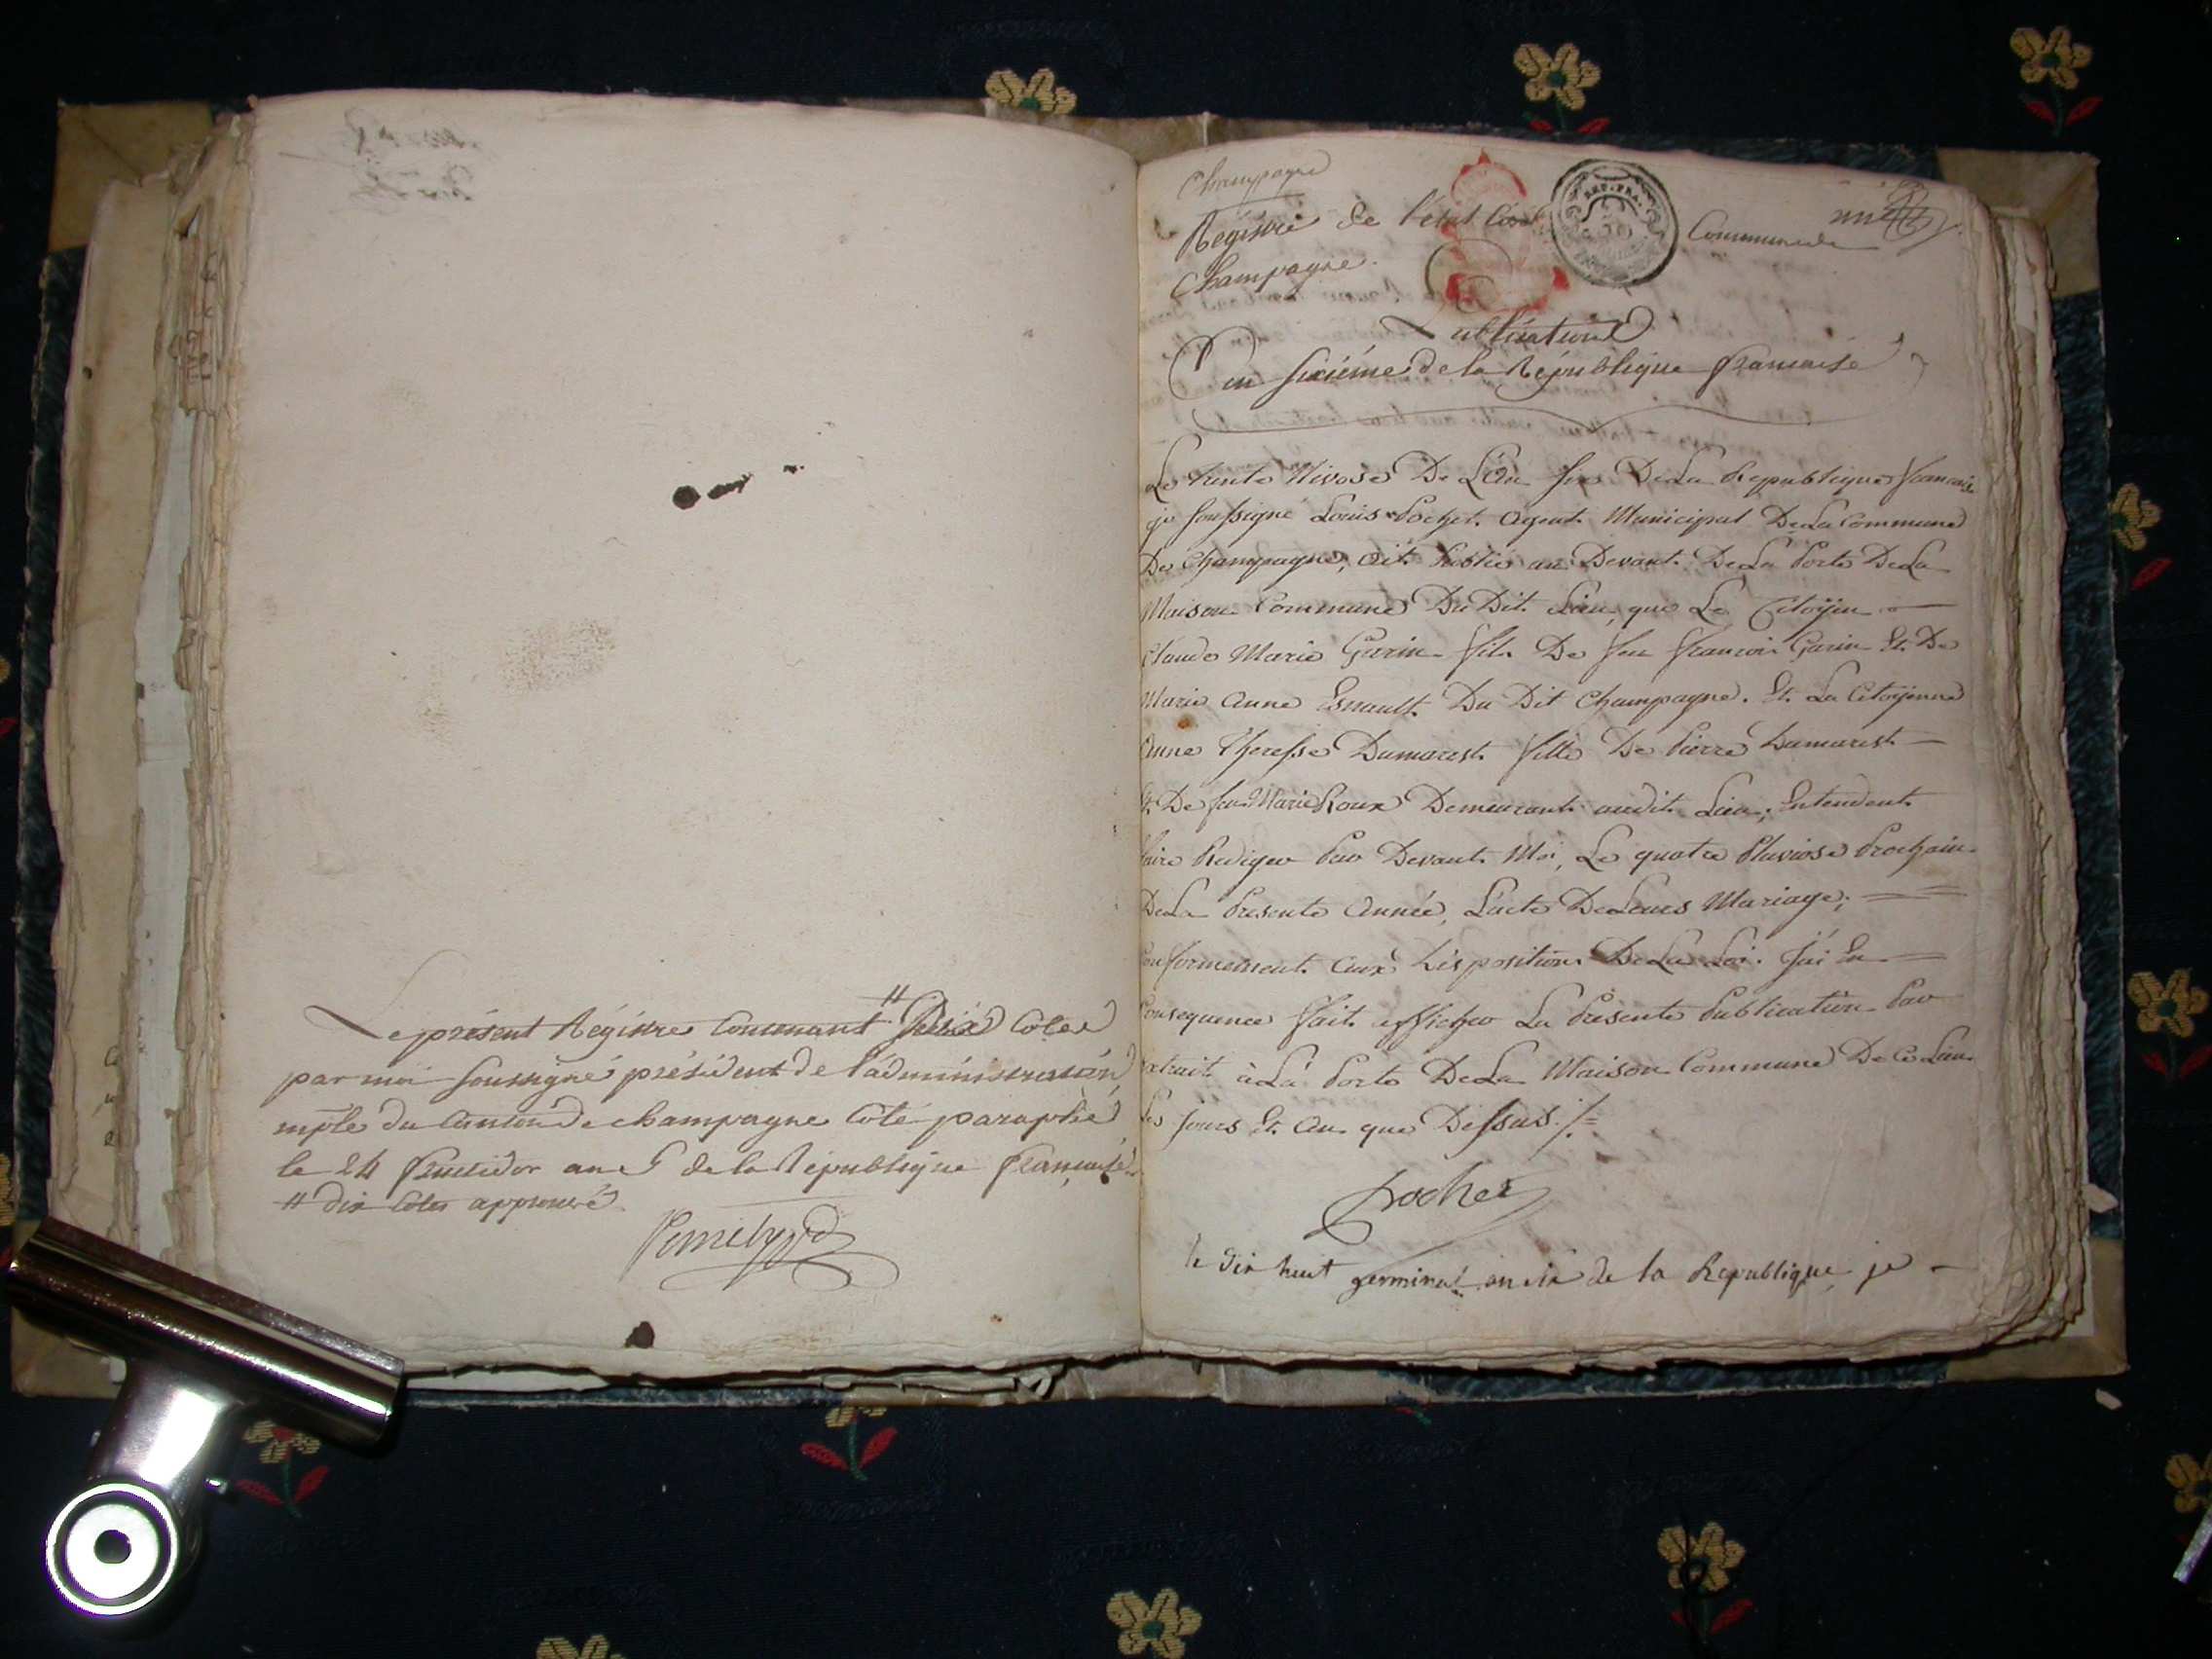 Le présent Régistre Contenant # Cotes
par moi soussigné président de l'administration
mple du Canton de champagne Coté paraphé
le 24 fructidor an 5 de la République française
# dix Cotes approuvé
Champagne
Régistre de l'état Civil Commune de
Champagne.
Publications
an sixième de la République française
Le trente Nivose De L'an six De La Republique francaise
je soussigne Louis Pochet Agent Municipal De La Commune
De Champagne, ait Publié au Devant De La Porte De La
Maison Commune Du Dit Lieu, que Le Citoyen
Claude Marie Garin fils De feu francois Garin Et De
Marie Anne Esnault Du Dit Champagne. Et La Citoyenne
Anne theresse Dumarest fille De Pierre Dumarest
Et De feu Marie Roux Demeurant audit Lieu; Entendent
faire Rediger Par Devant Moi, Le quatre Pluviose Prochain
De La Presente Année, L'acte De Leurs Mariage;
Conformement aux Dispositions De La Loi. J'ai En
Consequence fait afficher La Présente Publication Par
extrait à La Porte De La Maison Commune De Ce Lieu
Les jours Et An que Dessus ./.
Pochet
le dix huit germinal an six de la Republique je
REP. FRA.